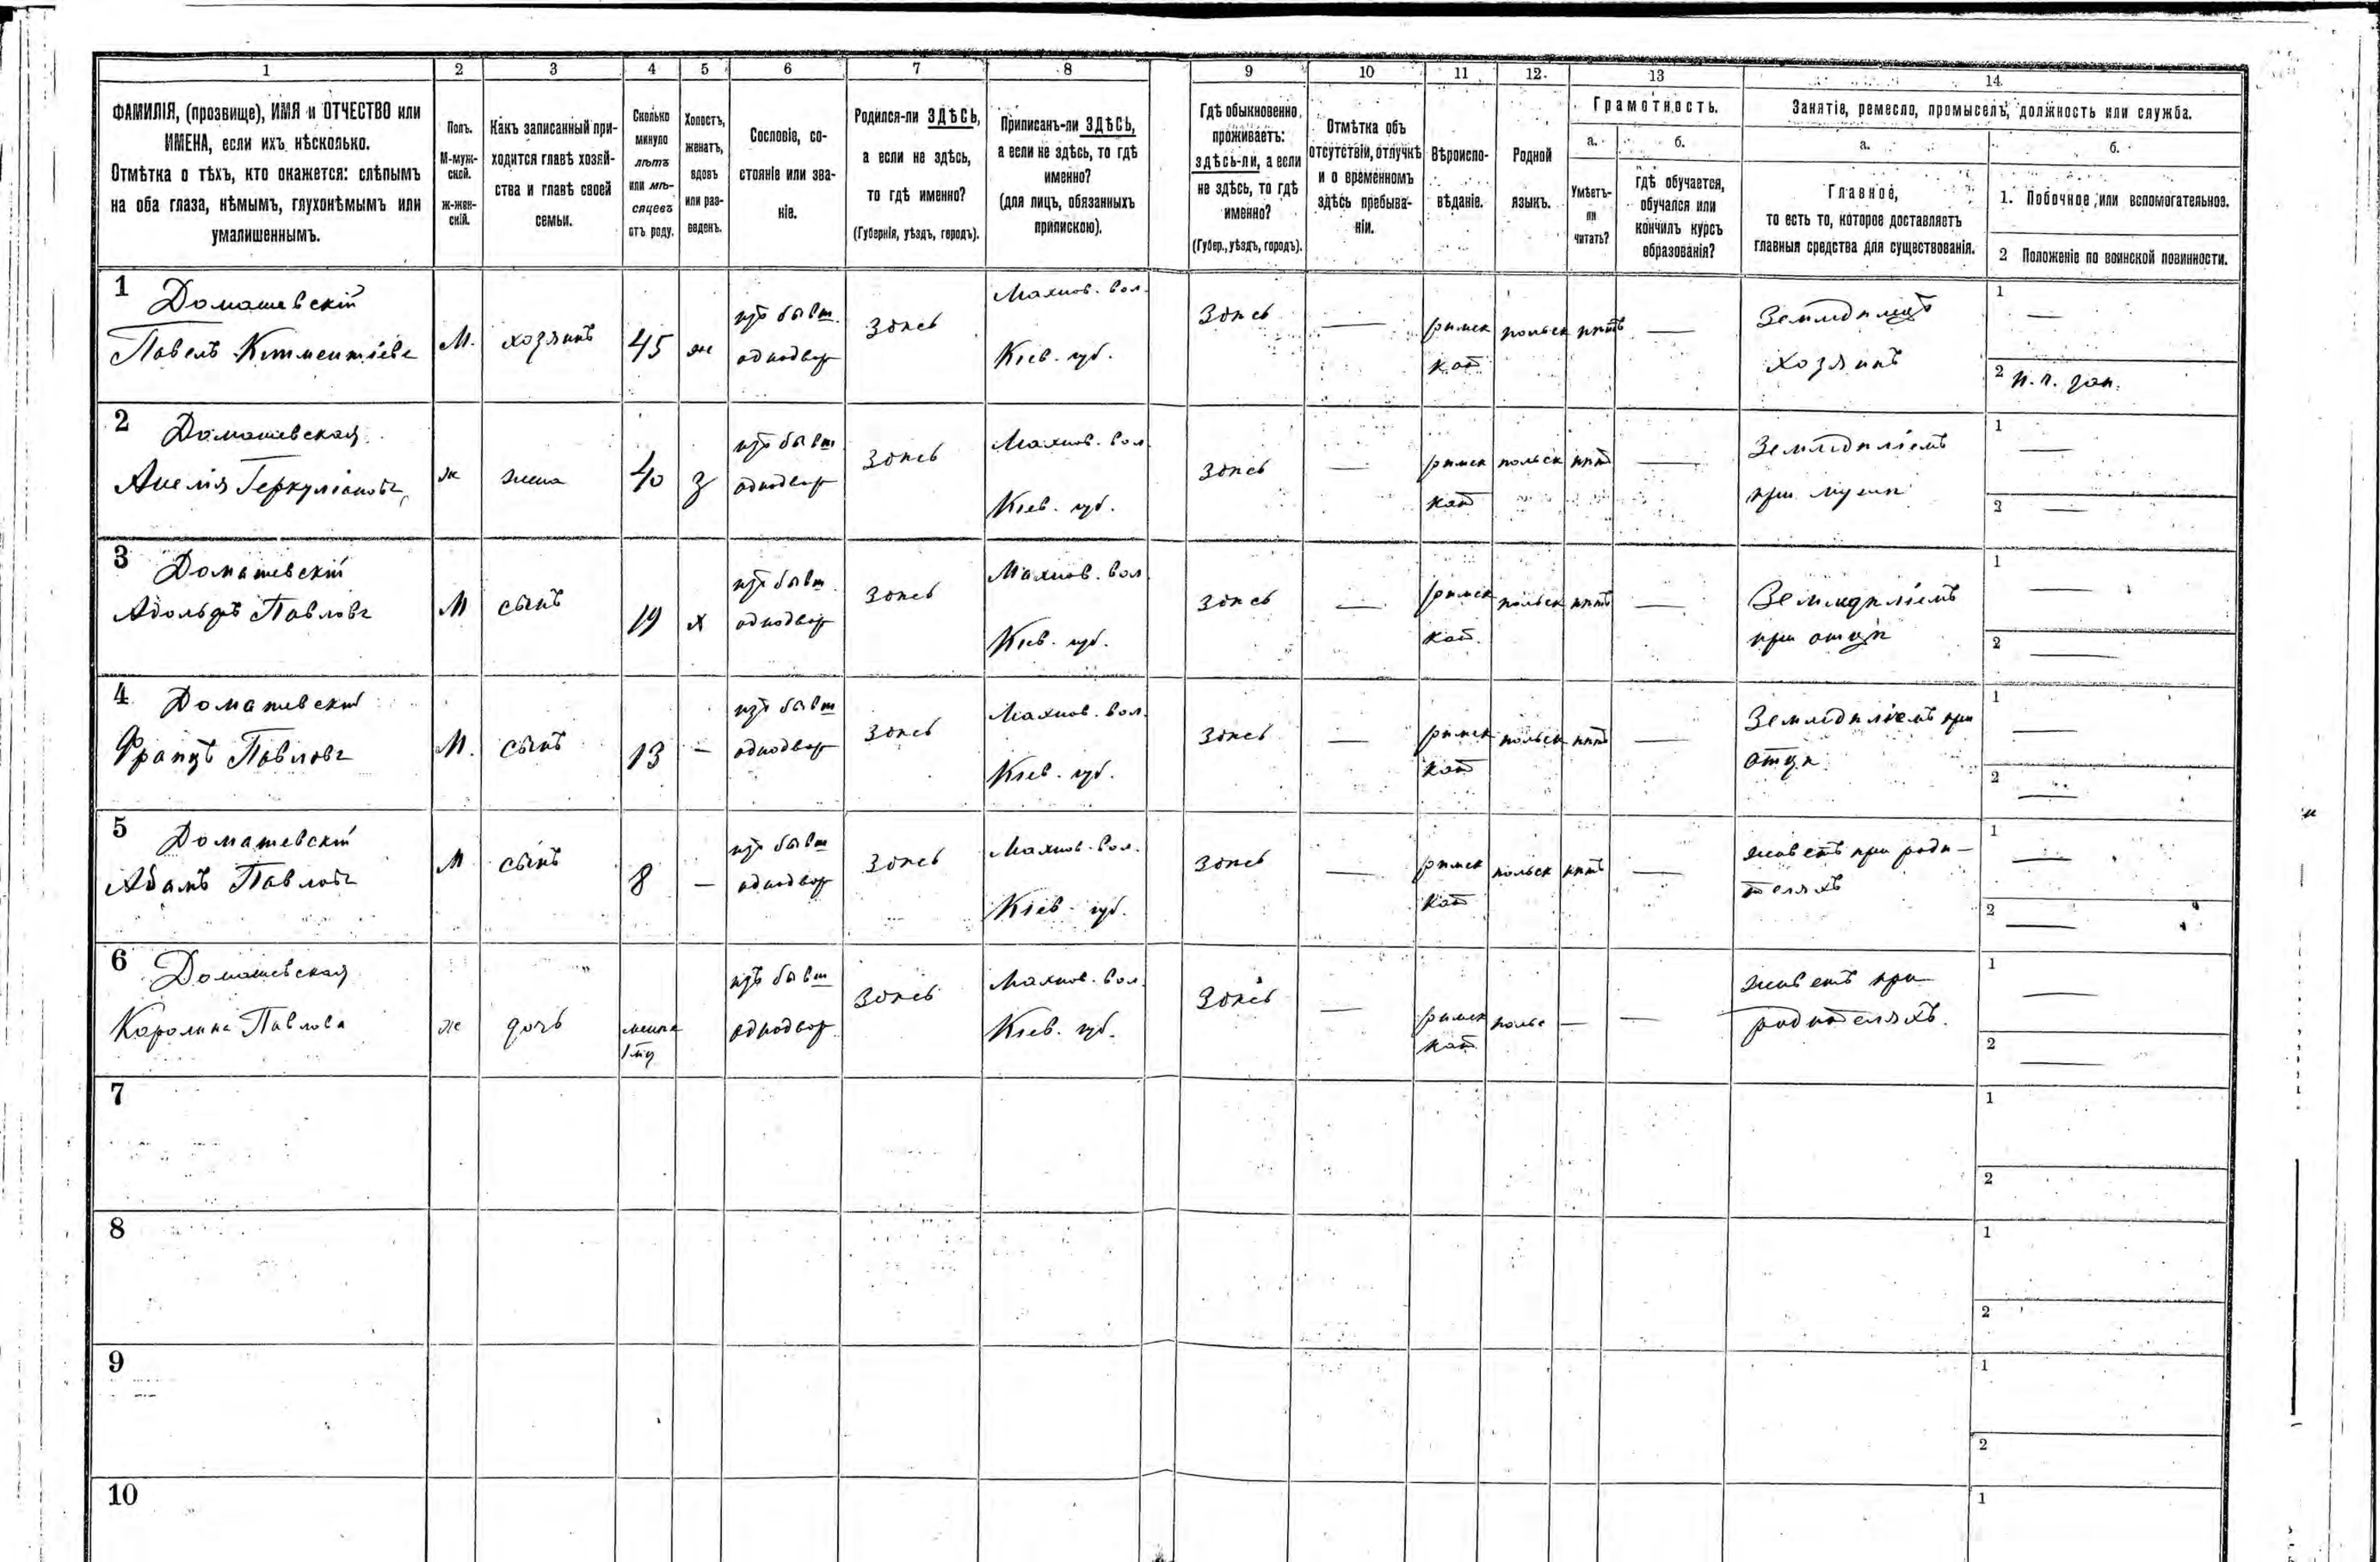 1 2 3 4 5 6 7 8 9 10 11 12. 13 14.
ФАМИЛІЯ, (прозвище), ИМЯ и ОТЧЕСТВО или
ИМЕНА, если ихъ нѣсколько.
Отмѣтка о тѣхъ, кто окажется: слѣпымъ
на оба глаза, нѣмымъ, глухонѣмымъ или
умалишеннымъ.
Полъ.
М-муж-
ской.
ж-жен-
скій.
Какъ записанный при-
ходится главѣ хозяй-
ства и главѣ своей
семьи.
Сколько
минуло
лѣтъ
или мѣ-
сяцевъ
отъ роду.
Холостъ,
женатъ,
вдовъ
или раз-
веденъ.
Сословіе, со-
стояніе или зва-
ніе.
Родился-ли ЗДѢСЬ,
а если не здѣсь,
то гдѣ именно?
(Губернія, уѣздъ, городъ).
Приписанъ-ли ЗДѢСЬ,
а если не здѣсь, то гдѣ
именно?
(для лицъ, обязанныхъ
припискою).
Гдѣ обыкновенно
проживаетъ:
здѣсь-ли, а если
не здѣсь, то гдѣ
именно?
(Губер., уѣздъ, городъ).
Отмѣтка объ
отсутствіи, отлучкѣ
и о временномъ
здѣсь пребыва-
ніи.
Вѣроиспо-
вѣданіе.
Родной
языкъ.
Грамотность.
а.
Умѣетъ-
ли
читать?
б.
гдѣ обучается,
обучался или
кончилъ курсъ
образованія?
Занятіе, ремесло, промыселъ, должность или служба.
а.
Главное,
то есть то, которое доставляетъ
главныя средства для существованія.
б.
1. Побочное или вспомогательное.
2 Положеніе по воинской повинности.
1 Домашевскій
Павелъ
М. хозяинъ 45 ж
изъ бывш.
однодвор
здѣсь
Махнов. вол.
Кіев. губ.
здѣсь —
римск
кат
польск нѣтъ —
хозяинъ
1 —
2
2 Домашевская
Анелія
ж жена 40 з
изъ бывш
однодвор
здѣсь
Махнов. вол.
Кіев. губ.
здѣсь —
римск
кат
польск нѣтъ —
Земледѣліемъ
при мужѣ
1 —
2 —
3 Домашевскій
Адольфъ Павловъ
М сынъ 19 х
изъ бывш.
однодвор
здѣсь
Махнов. вол
Кіев. губ.
здѣсь —
римск
кат.
польск нѣтъ —
Земледѣліемъ
при отцѣ
1 —
2 —
4 Домашевскій
Францъ Павловъ
М. сынъ 13 —
изъ бывш
однодвор
здѣсь
Махнов. вол.
Кіев. губ.
здѣсь —
римск
кат
польск нѣтъ —
Земледѣліемъ при
отцѣ
1 —
2 —
5 Домашевскій
Адамъ Павловъ
М сынъ 8 —
изъ бывш
однодвор
здѣсь
Махнов. вол.
Кіев. губ.
здѣсь —
римск
кат
польск нѣтъ —
живетъ при роди-
теляхъ
1 —
2 —
6 Домашевская
Каролина Павлова
ж дочь
менѣе
1 мц
изъ бывш
однодвор
здѣсь
Махнов. вол.
Кіев. губ.
здѣсь —
римск
кат
польс — —
живетъ при
родителяхъ.
1 —
2 —
7
1
2
8
1
2
9
1
2
10
1